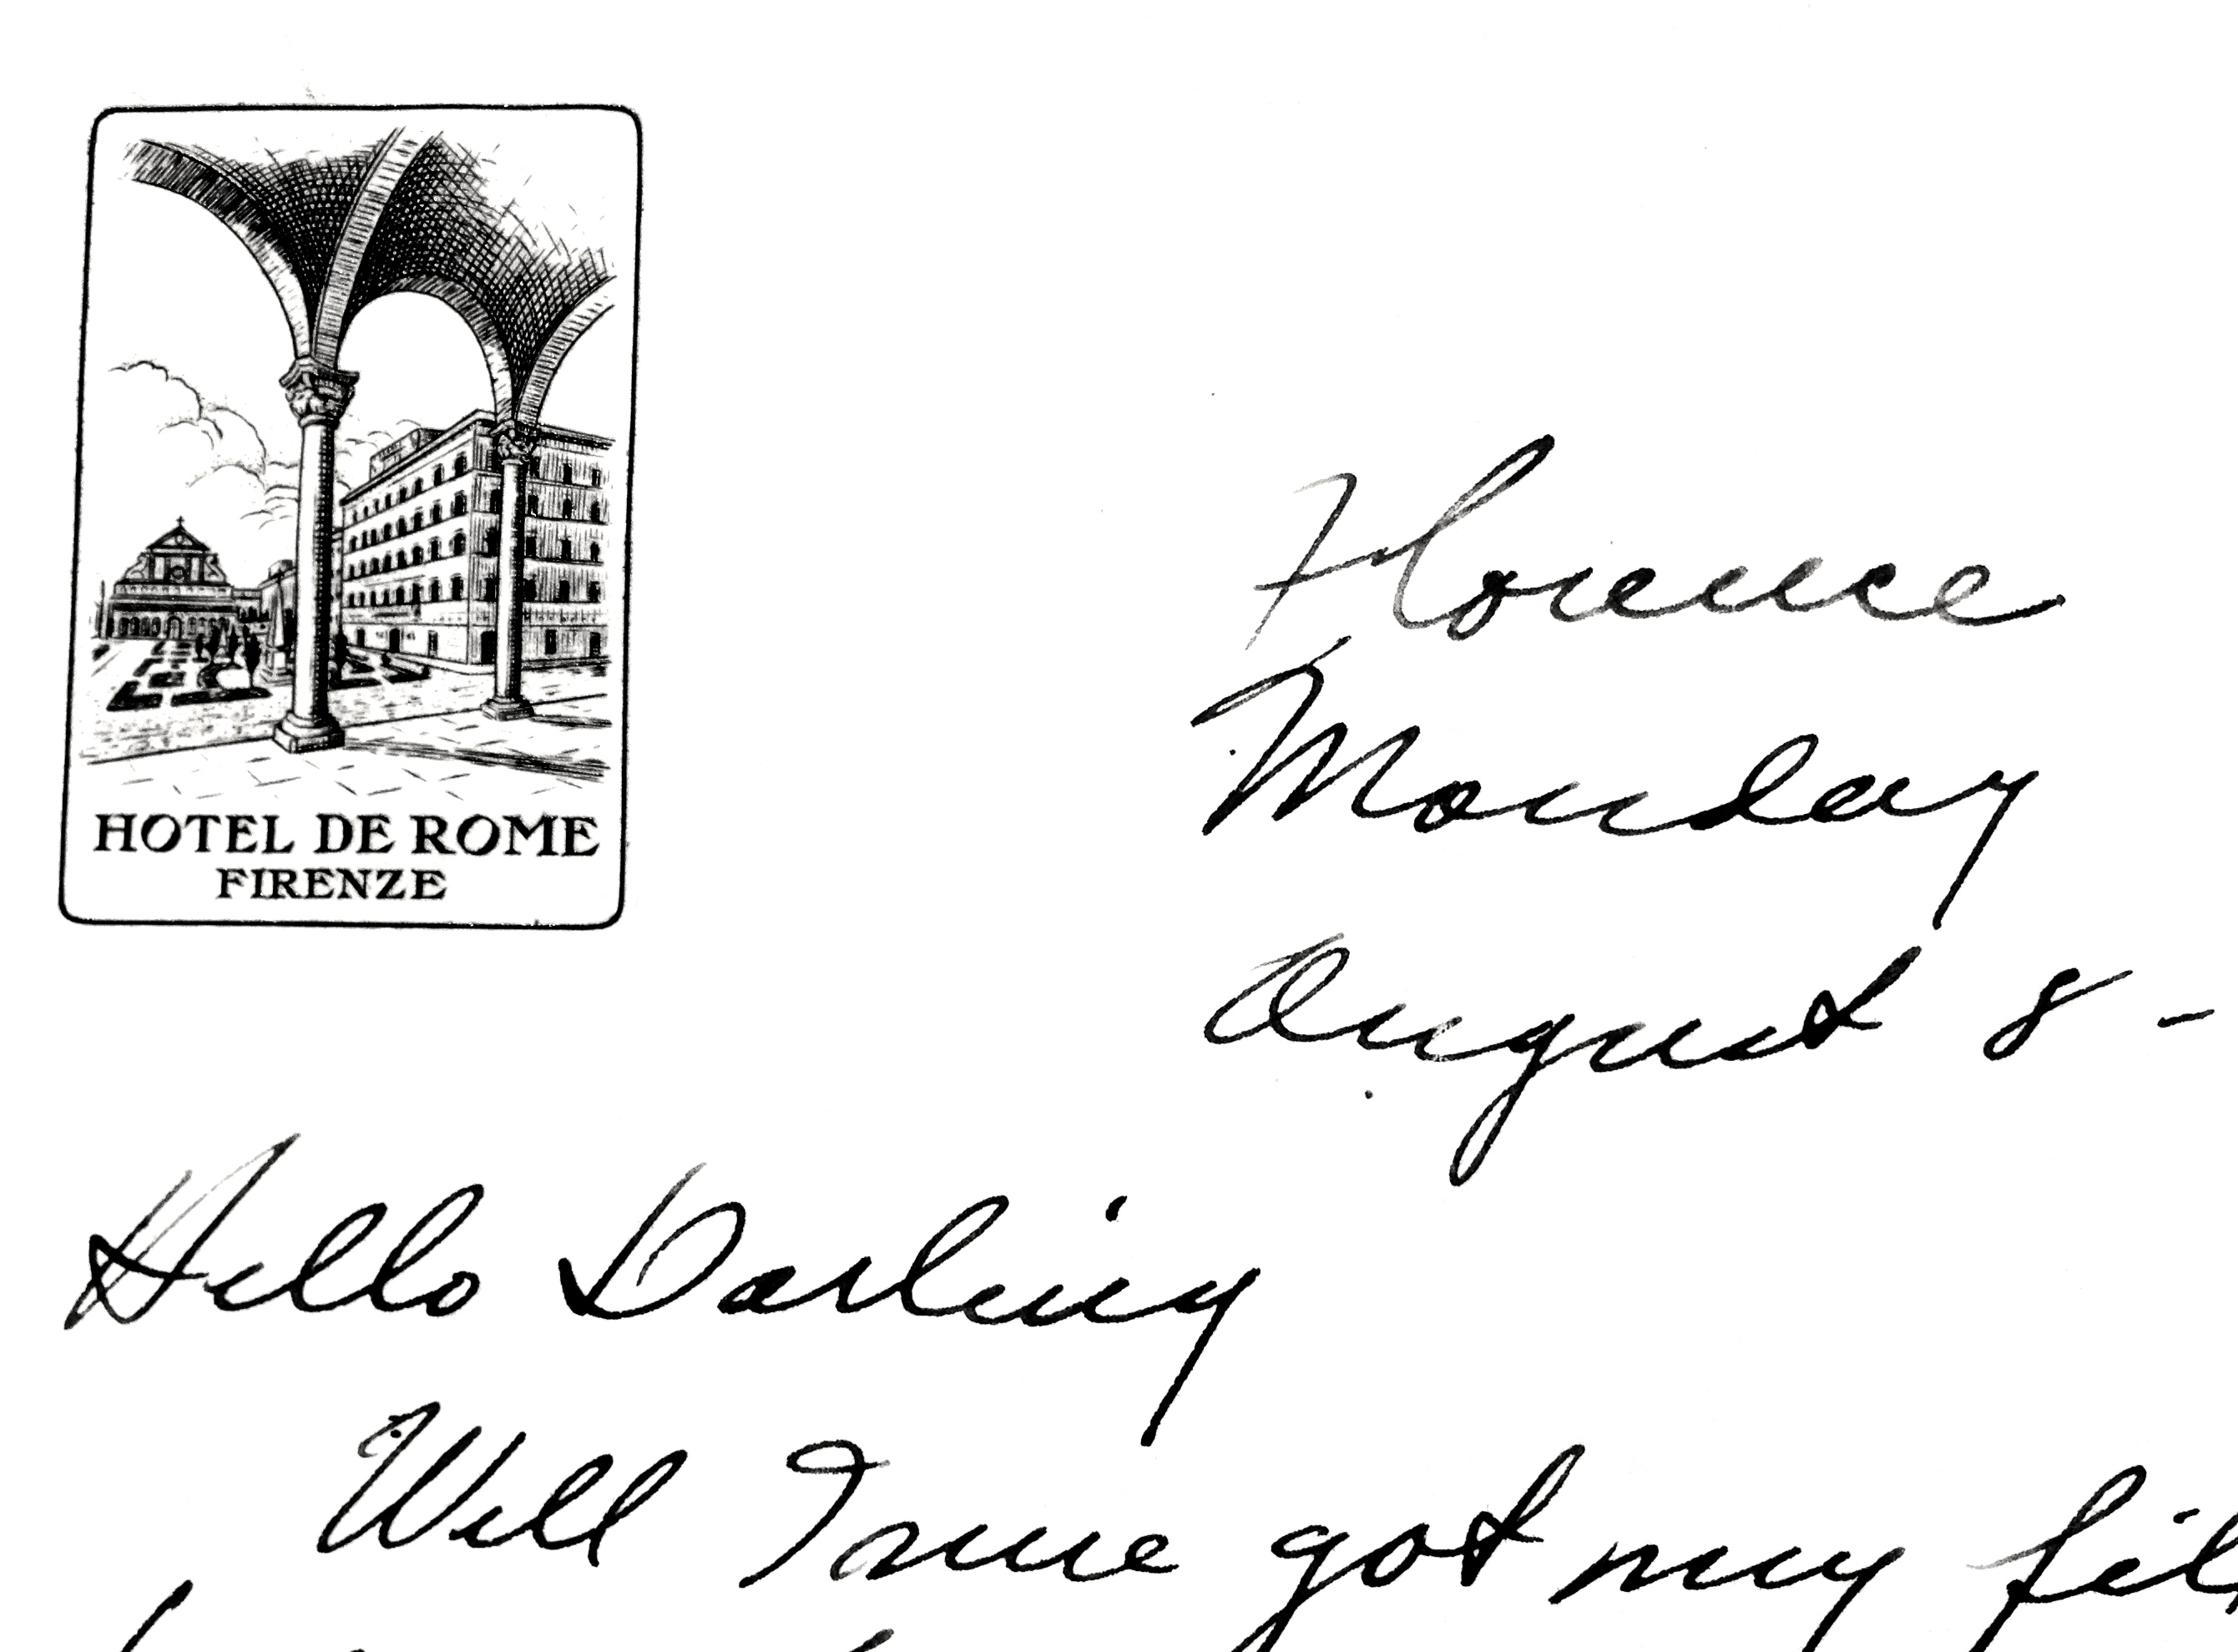 HOTEL DE ROME
FIRENZE
Florence
Monday
August 8 -
Hello Darling
Well Tome got my fil